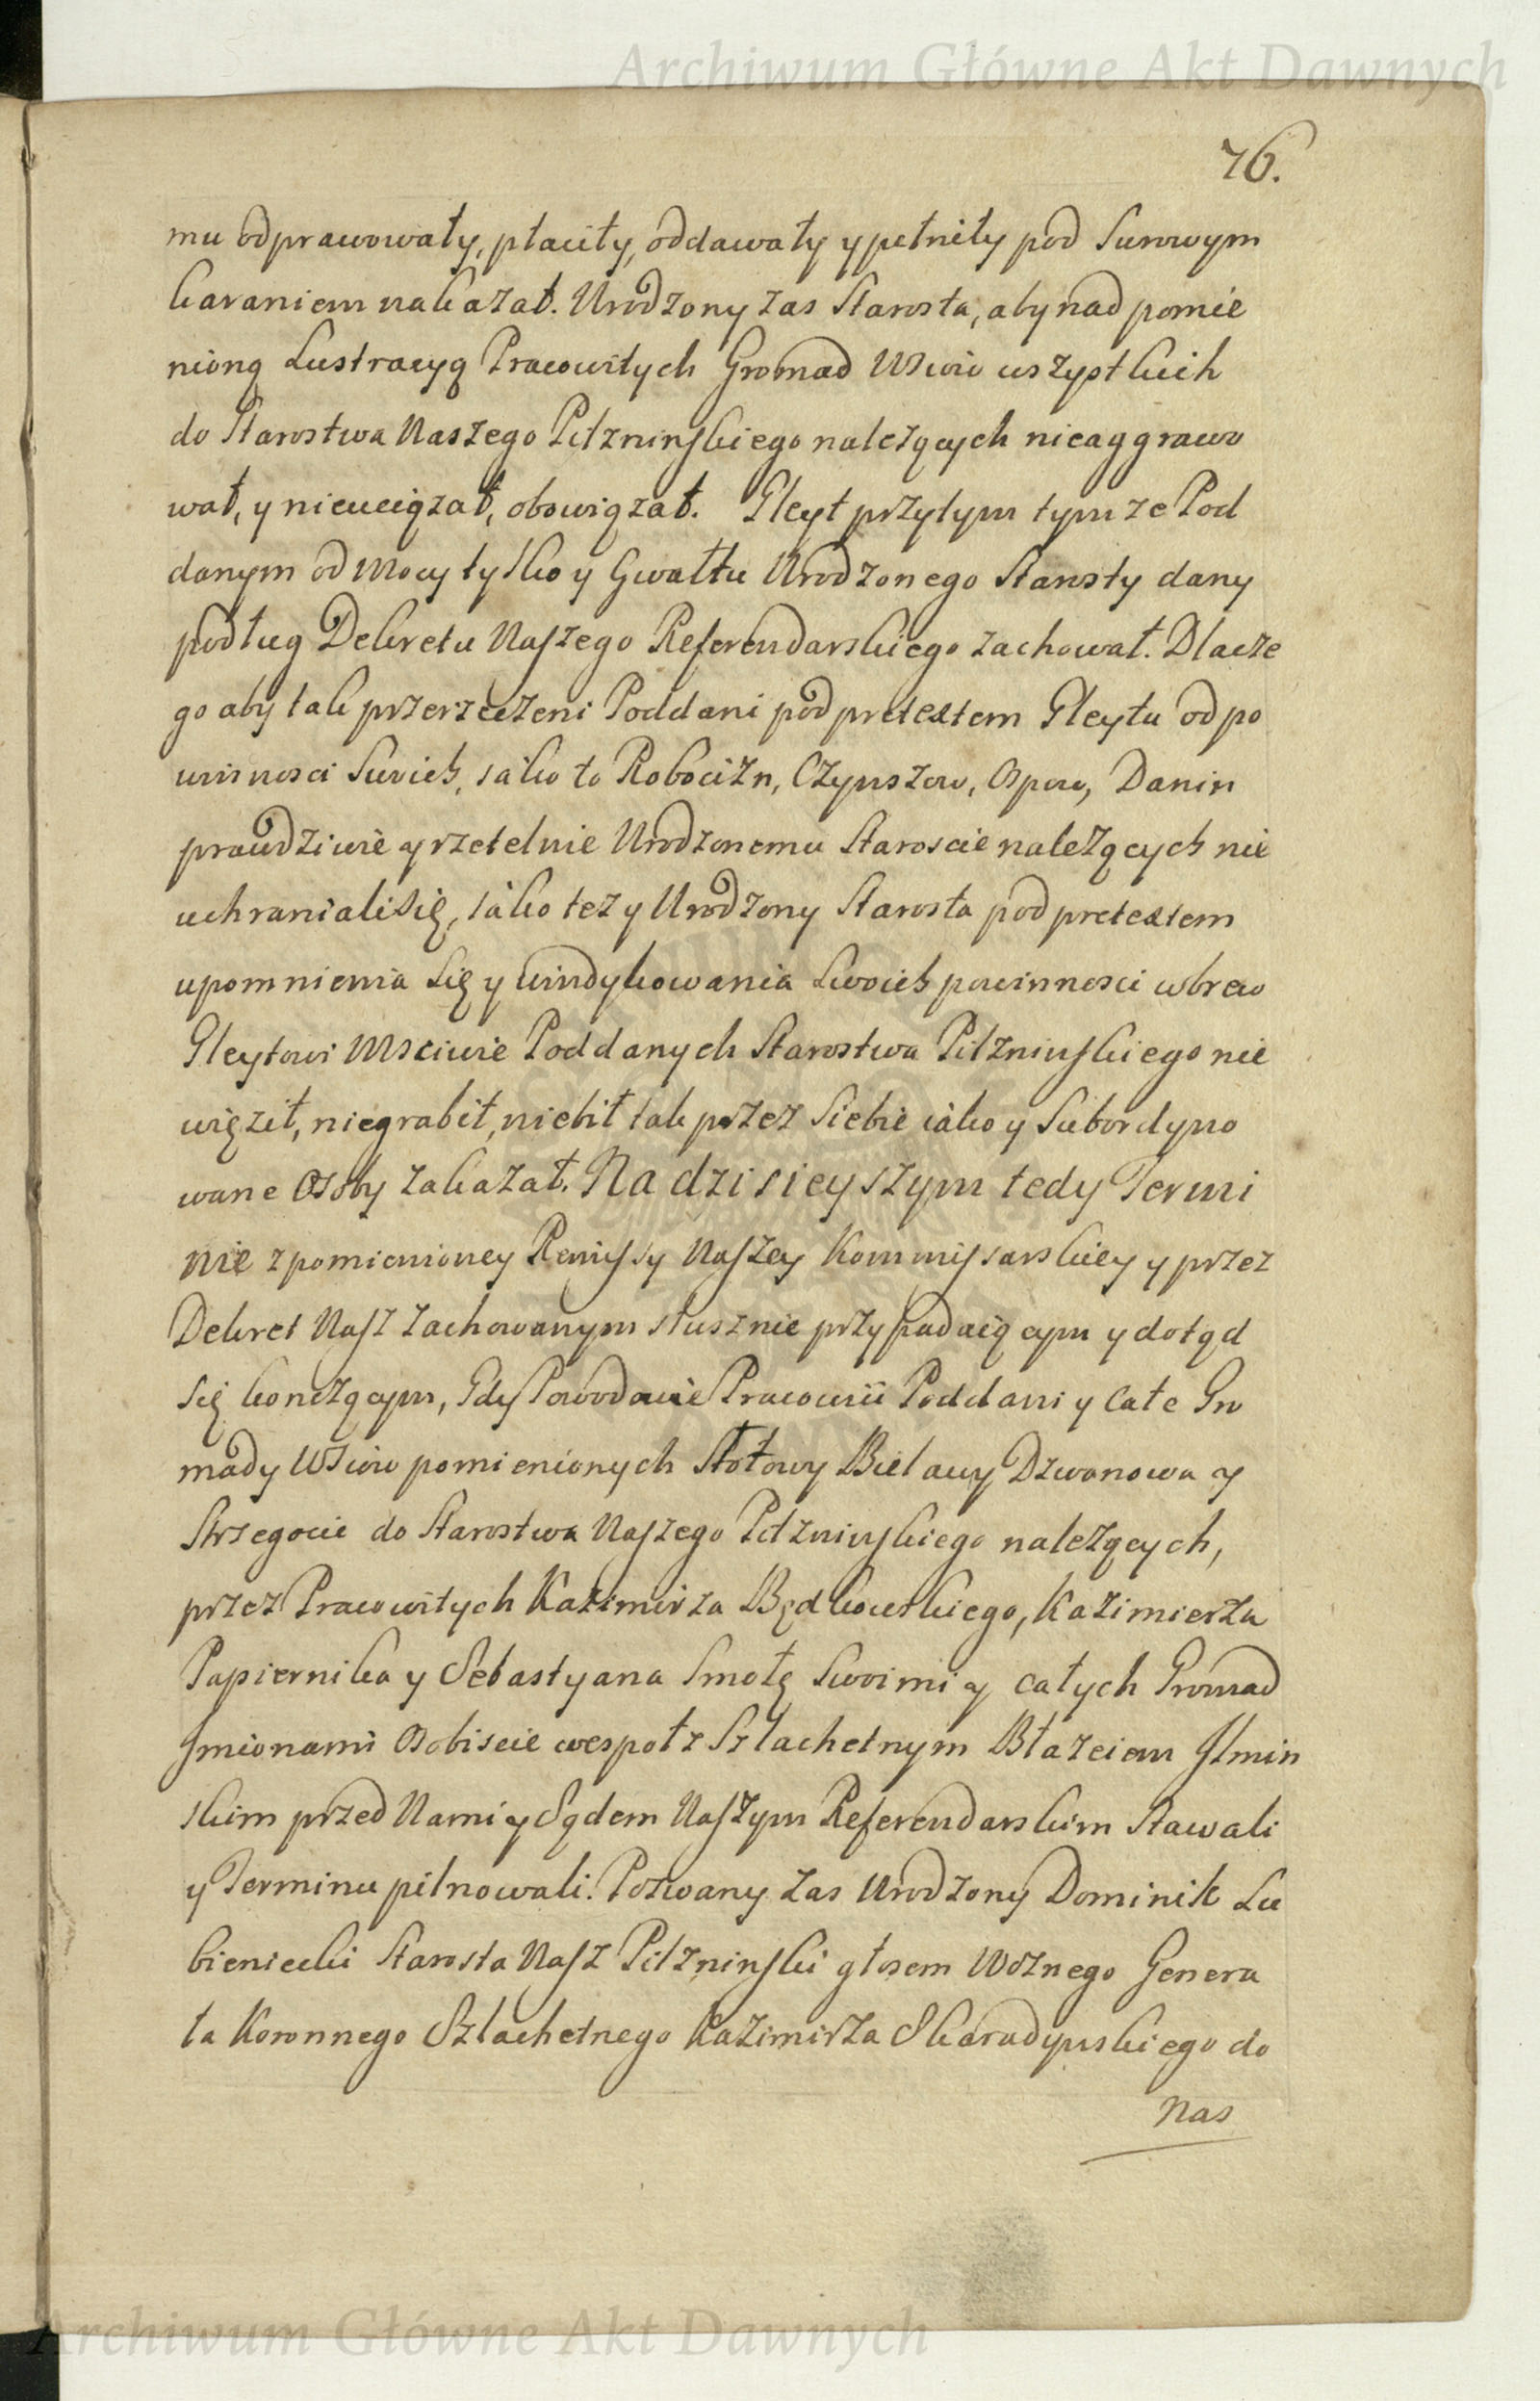 Archiwum Główne Akt Dawnych
76.
mu odprawowały, płaciły, oddawały y pełniły pod Surowym
karaniem nakazał. Urodzony zas Starosta, aby nad pomie
nioną Lustracyą Pracowitych Gromad Wsiow wszystkich
do Starostwa Naszego Pilzninskiego należących nieaggrawo
wał, y nieuciązał, obowiązał. Gleyt przytym tymze Pod
danym od Mocy tylko y Gwałtu Urodzonego Starosty dany
podług Dekretu Naszego Referendarskiego zachował. Dlacze
go aby tak przerzeczeni Poddani pod pretextem Gleytu od po
winnosci Swoich, iako to Robocizn, Czynszow, Ospow, Danin
prawdziwie y rzetelnie Urodzonemu Staroscie należących nie
uchraniali się, iako tez y Urodzony Starosta pod pretextem
upomnienia się y windykowania Swoich powinnosci wbrew
Gleytowi Msciwie Poddanych Starostwa Pilzninskiego nie
więził, niegrabił, niebił tak przez Siebie iako y Subordyno
wane Osoby zakazał. Na dzisieyszym tedy Termi
nie z pomienioney Remissy Naszey Kommissarskiey y przez
Dekret Nasz zachowanym słusznie przypadaiącym y dotąd
się kończącym, Gdy Powodowie Pracowici Poddani y Całe Gro
mady Wsiow pomienionych Słotowy Bielawy Dzwonowa y
Strzegocic do Starostwa Naszego Pilzninskiego należących,
przez Pracowitych Kazimirza Będkowskiego, Kazimierza
Papiernika y Sebastyana Smołę Swoimi y całych Gromad
Imionami Osobiscie wespoł z Szlachetnym Błazeiem Ilmin
skim przed Nami y Sądem Naszym Referendarskim Stawali
y Terminu pilnowali. Pozwany zas Urodzony Dominik Łu
bieniecki Starosta Nasz Pilzninski głosem Woznego Genera
ła Koronnego Szlachetnego Kazimirza Skaradynskiego do
Nas
Archiwum Główne Akt Dawnych